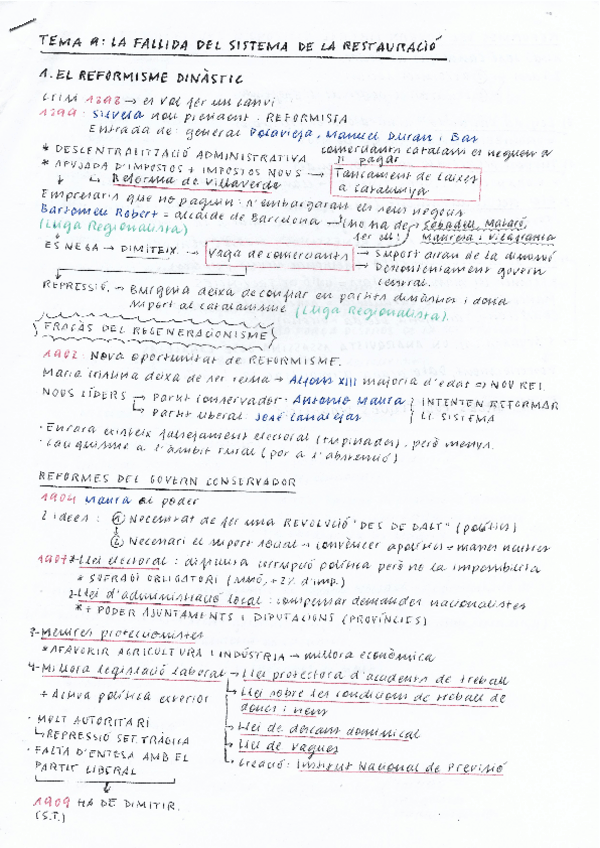 TEMA 9: LA FALLIDA DEL SISTEMA DE LA RESTAURACIÓ
1. EL REFORMISME DINÀSTIC
CRISI 1898 → es vol fer un canvi
1899: Silvela nou president. REFORMISTA
Entrada de: general Polavieja, Manuel Duran i Bas
* DESCENTRALITZACIÓ ADMINISTRATIVA
comerciants catalans es neguen a
pagar
* APUJADA D'IMPOSTOS + IMPOSTOS NOUS → Tancament de caixes
↳ Reforma de Villaverde
a Catalunya
Empresaris que no paguin: s'embargaran els seus negocis
Bartomeu Robert = alcalde de Barcelona → de Sabadell, Mataró,
(Lliga Regionalista)
Manresa i Vilafranca
ES NEGA → DIMITEIX. → Vaga de comerciants → Suport arran de la dimissió
→ Descontentament govern
central.
REPRESSIÓ. → Burgesia deixa de confiar en partits dinàstics i dona
suport al catalanisme (Lliga Regionalista).
FRACÀS DEL REGENERACIONISME
1902: Nova oportunitat de REFORMISME.
Maria Cristina deixa de ser reina → Alfons XIII majoria d'edat → NOU REI.
NOUS LÍDERS → Partit conservador: Antonio Maura } INTENTEN REFORMAR
↳ Partit liberal: José Canalejas } EL SISTEMA
· Encara existeix falsejament electoral (tupinades), però menys.
· Caciquisme a l'àmbit rural (por a l'abstenció)
REFORMES DEL GOVERN CONSERVADOR
1904 Maura al poder
2 idees: ① Necessitat de fer una REVOLUCIÓ "DES DE DALT" (polítics)
② Necessari el suport social → convèncer apolítics = masses neutres
1907: 1- Llei electoral: dificulta corrupció política però no la impossibilita
* SUFRAGI OBLIGATORI
2- Llei d'administració local: compensar demandes nacionalistes
* + PODER AJUNTAMENTS I DIPUTACIONS (PROVÍNCIES)
3- Mesures proteccionistes
* AFAVORIR AGRICULTURA I INDÚSTRIA → millora econòmica
4- Millora legislació laboral → Llei protectora d'accidents de treball
+ Activa política exterior
↳ Llei sobre les condicions de treball de
dones i nens
· MOLT AUTORITARI
↳ Llei de descans dominical
↳ REPRESSIÓ SET. TRÀGICA
↳ Llei de vagues
· FALTA D'ENTESA AMB EL
↳ Creació: Institut Nacional de Previsió
PARTIT LIBERAL
1909 HA DE DIMITIR.
(S.T.)